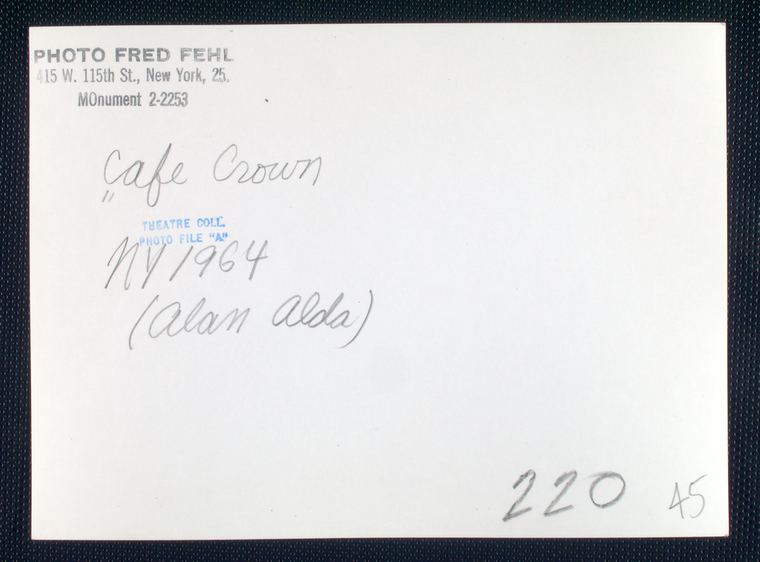 PHOTO FRED FEHL
415 W. 115th St., New York, 25.
MOnument 2-2253
Cafe Crown
"
THEATRE COLL.
PHOTO FILE "A"
NY 1964
(Alan Alda)
220 45